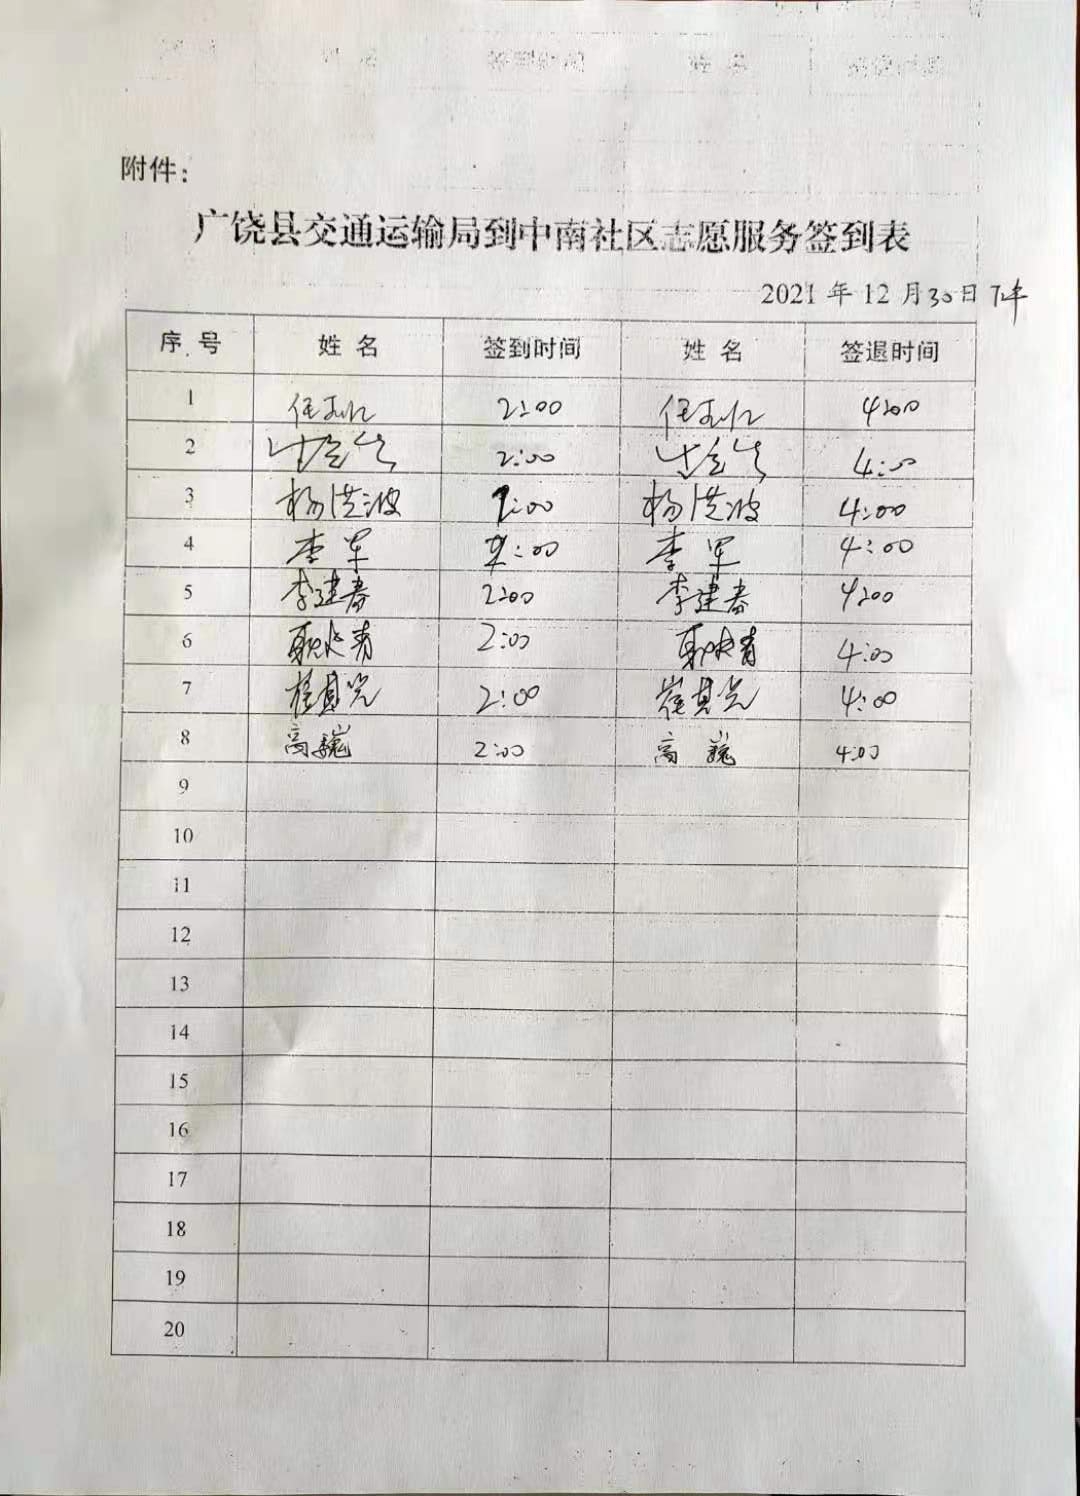 附件:
广饶县交通运输局到中南社区志愿服务签到表
2021 年 12 月 30 日 下午
序号 姓名 签到时间 姓名 签退时间
1 2:00 4:00
2 2:00 4:00
3 杨洪波 2:00 杨洪波 4:00
4 李军 2:00 李军 4:00
5 李建春 2:00 李建春 4:00
6 2:00 4:00
7 崔其光 2:00 崔其光 4:00
8 高巍 2:00 高巍 4:00
9
10
11
12
13
14
15
16
17
18
19
20